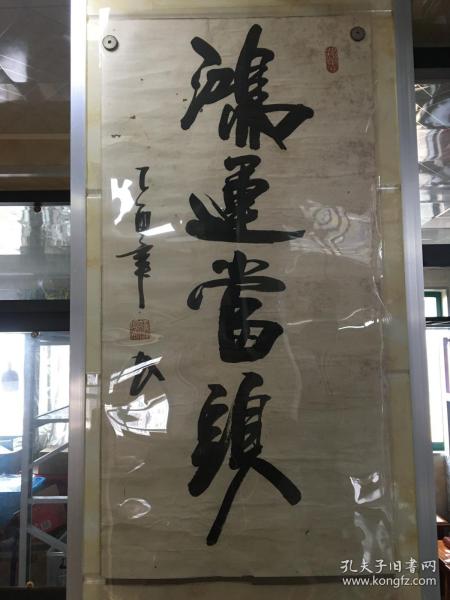 鴻運當頭
乙酉年
孔夫子旧书网
www.kongfz.com